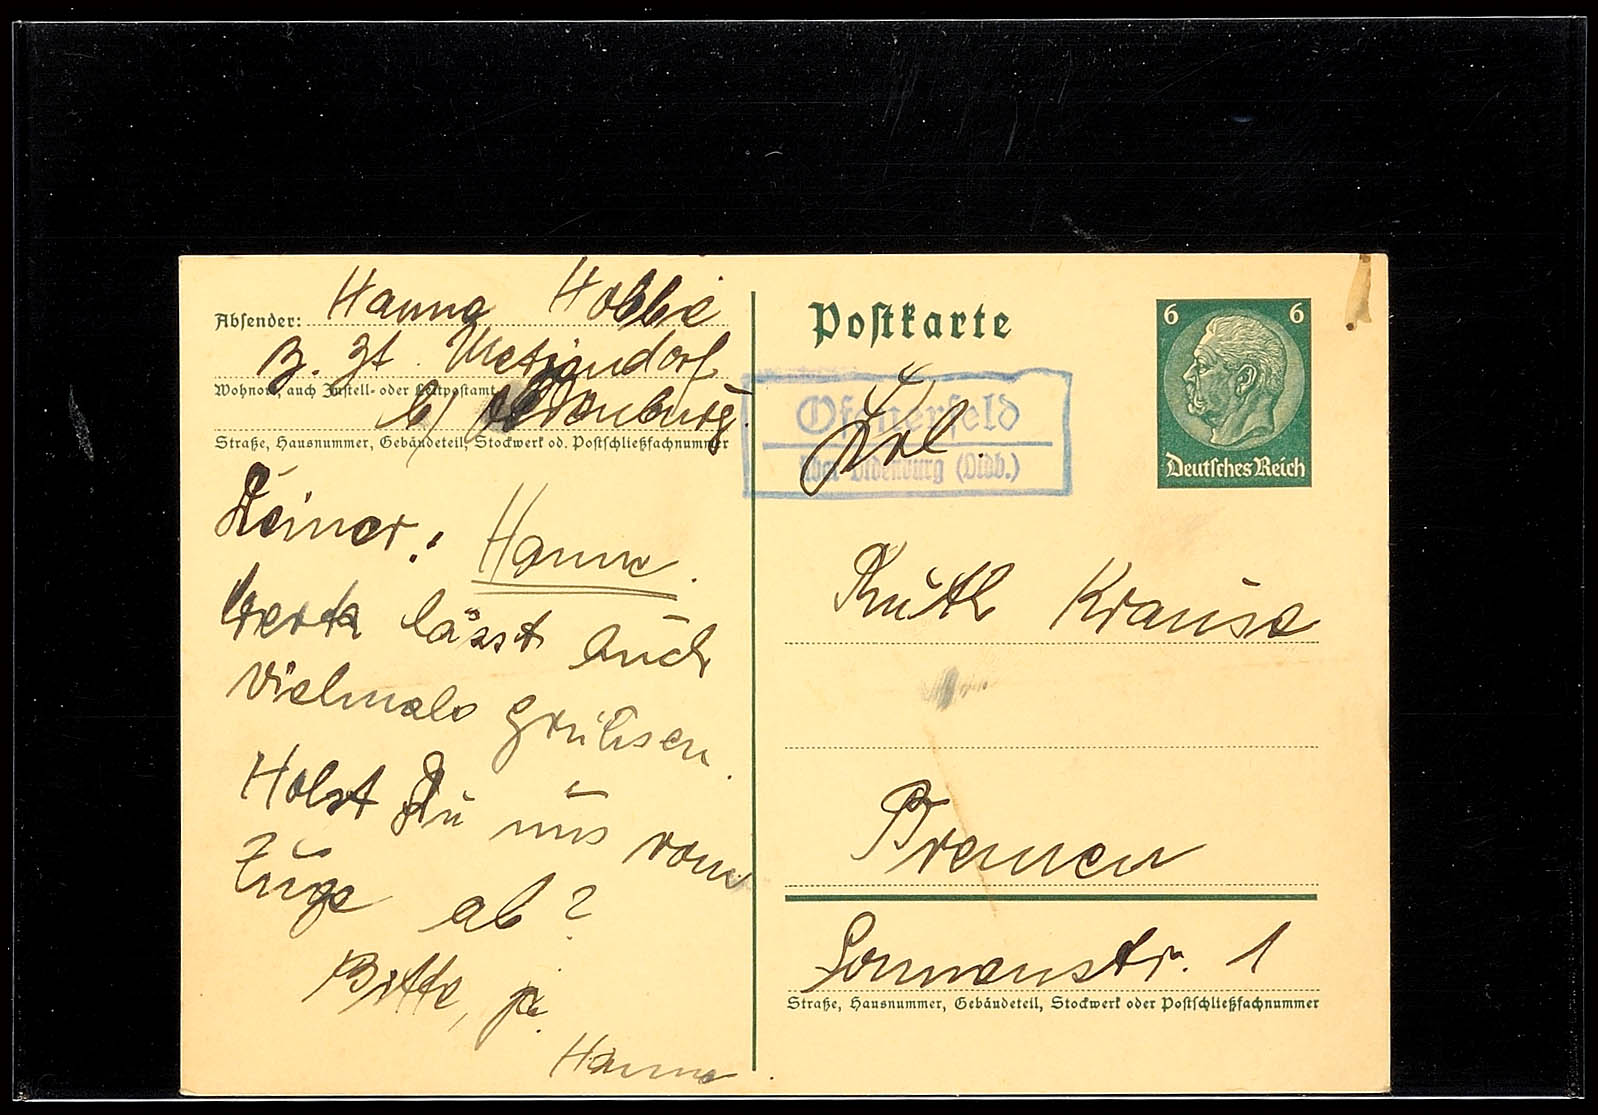 Absender: Hanna Hobbie
z. Zt. Metjendorf
Wohnort, auch Zustell- oder Leitpostamt
b/ Oldenburg.
Straße, Hausnummer, Gebäudeteil, Stockwerk od. Postschließfachnummer
Deiner
Hanna.
lässt auch
vielmals grüssen.
Holst Du uns vom
Zuge ab?
Bitte, ja.
Hanna.
Postkarte
6 6
Deutsches Reich
Ofenerfeld
über Oldenburg (Oldb.)
Frl.
Ruth Krause
Bremen
Sonnenstr. 1
Straße, Hausnummer, Gebäudeteil, Stockwerk oder Postschließfachnummer